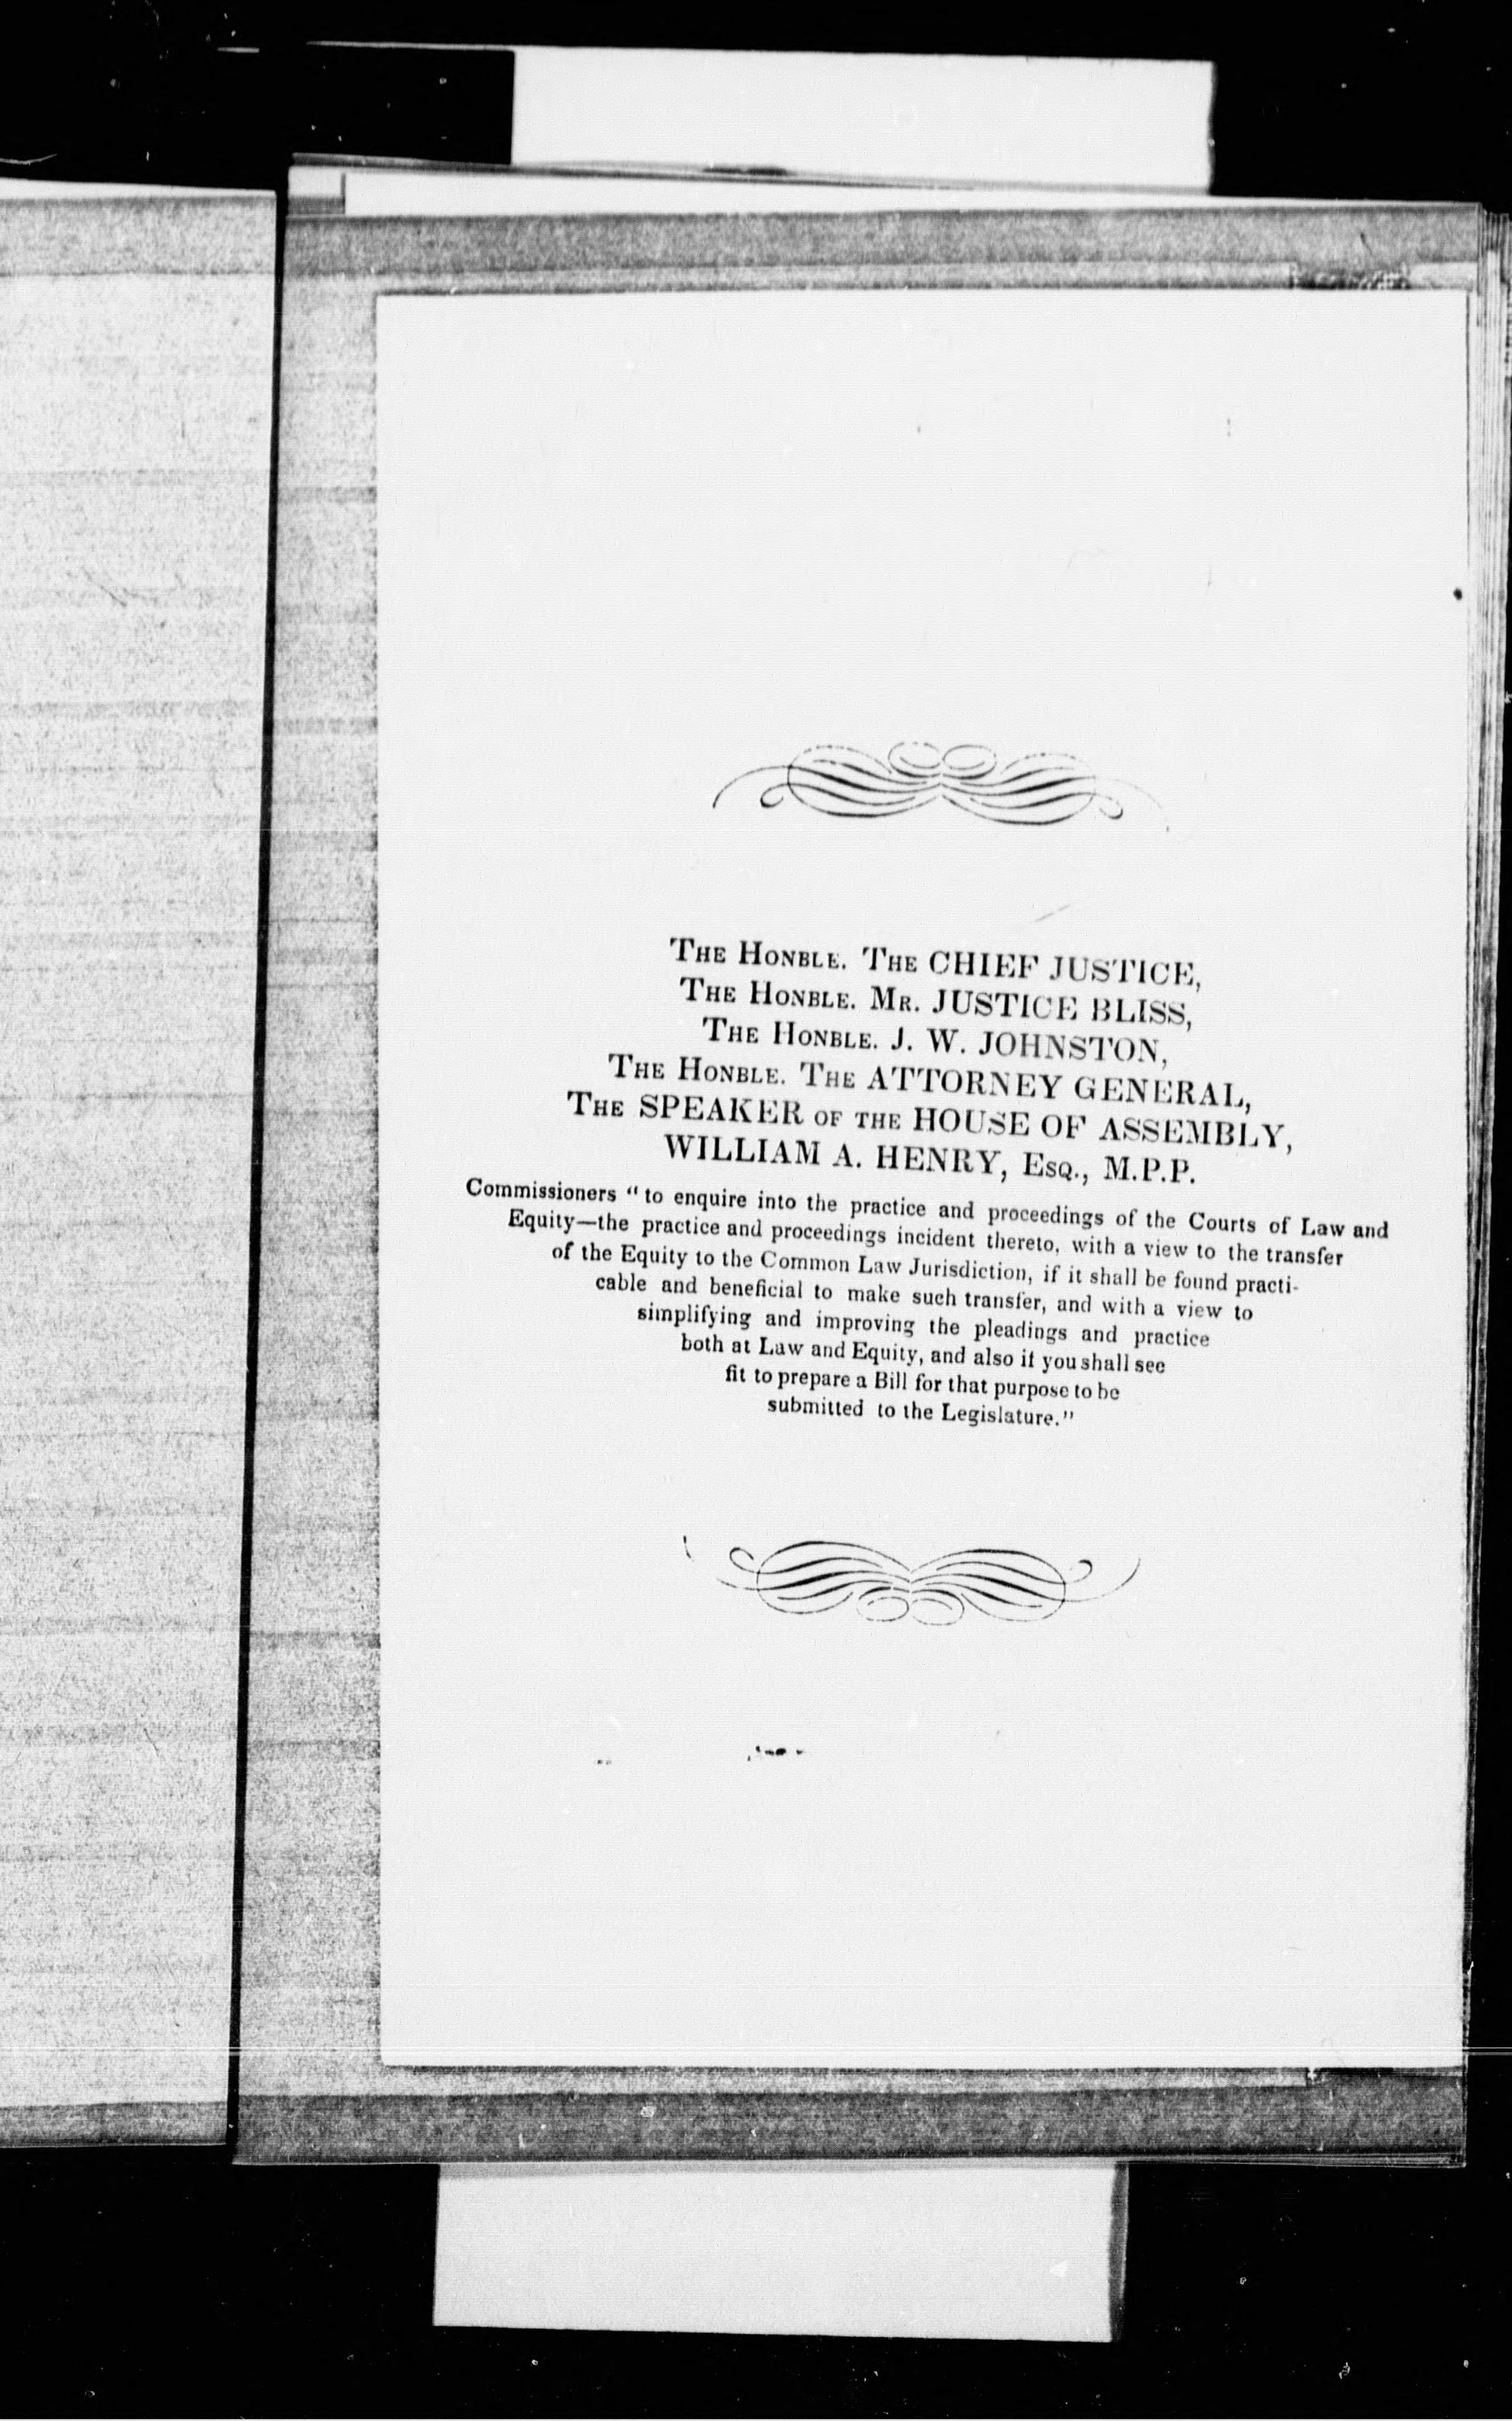 The Honble. The CHIEF JUSTICE,
The Honble. Mr. JUSTICE BLISS,
The Honble. J. W. JOHNSTON,
The Honble. The ATTORNEY GENERAL,
The SPEAKER of the HOUSE OF ASSEMBLY,
WILLIAM A. HENRY, Esq., M.P.P.
Commissioners "to enquire into the practice and proceedings of the Courts of Law and
Equity—the practice and proceedings incident thereto, with a view to the transfer
of the Equity to the Common Law Jurisdiction, if it shall be found practi-
cable and beneficial to make such transfer, and with a view to
simplifying and improving the pleadings and practice
both at Law and Equity, and also if you shall see
fit to prepare a Bill for that purpose to be
submitted to the Legislature."